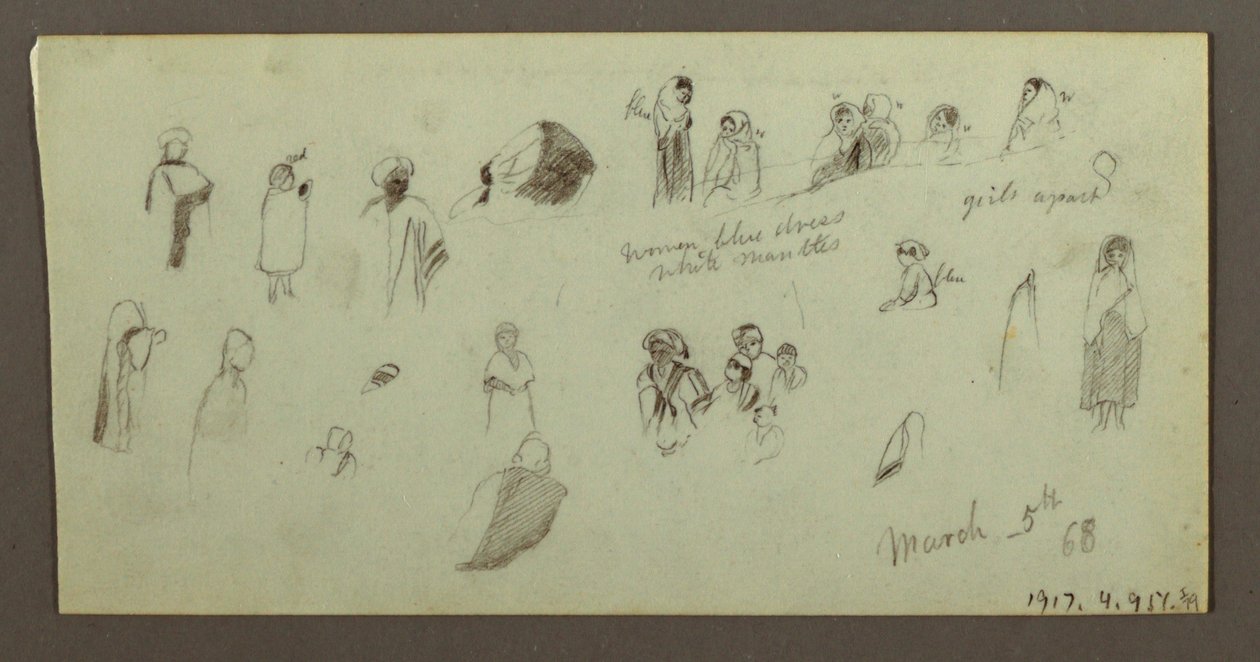 blue
w
w
w
w
w
red
girls apart
women blue dress
white mantles
blue
March 5th
68
1917. 4. 951.